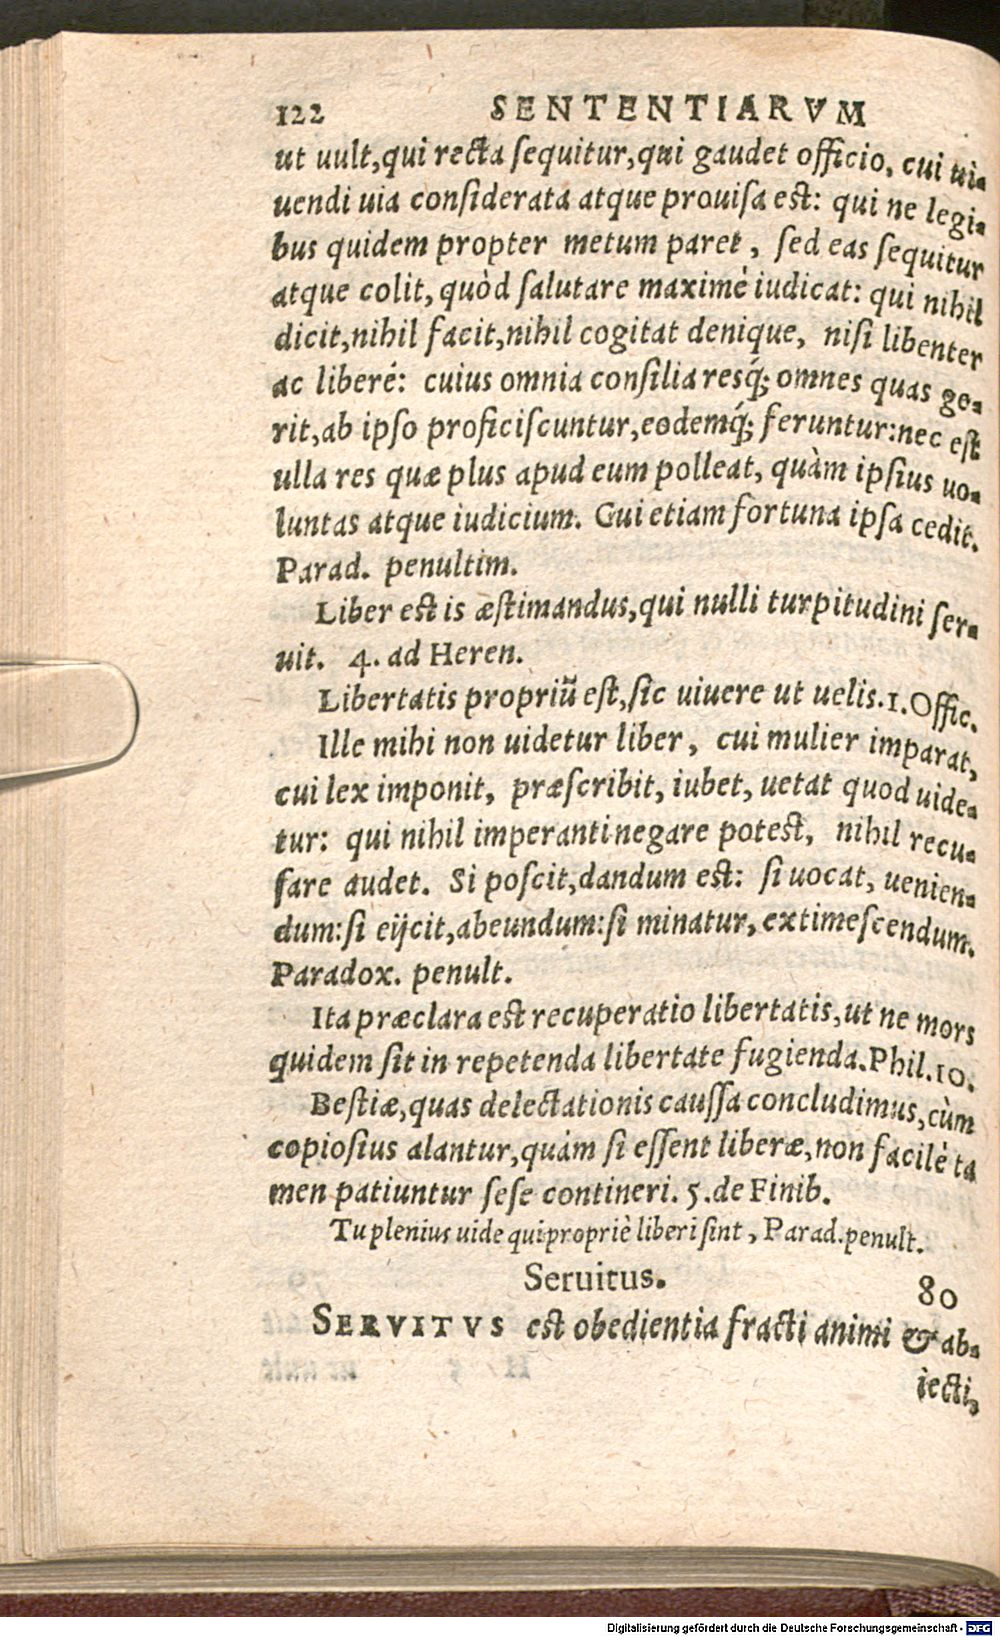 122 SENTENTIARVM
ut uult, qui recta ſequitur, qui gaudet officio, cui ui-
uendi uia conſiderata atque prouiſa eſt: qui ne legi-
bus quidem propter metum paret, ſed eas ſequitur
atque colit, quòd ſalutare maximè iudicat: qui nihil
dicit, nihil facit, nihil cogitat denique, niſi libenter
ac liberé: cuius omnia conſilia resq́; omnes quas ge-
rit, ab ipſo proficiſcuntur, eodemq́; feruntur: nec eſt
ulla res quæ plus apud eum polleat, quàm ipſius uo-
luntas atque iudicium. Cui etiam fortuna ipſa cedit.
Parad. penultim.
Liber eſt is æſtimandus, qui nulli turpitudini ſer-
uit. 4. ad Heren.
Libertatis propriũ eſt, ſic uiuere ut uelis. 1. Offic.
Ille mihi non uidetur liber, cui mulier imparat,
cui lex imponit, præſcribit, iubet, uetat quod uide-
tur: qui nihil imperanti negare poteſt, nihil recu-
ſare audet. Si poſcit, dandum eſt: ſi uocat, uenien-
dum: ſi eijcit, abeundum: ſi minatur, extimeſcendum.
Paradox. penult.
Ita præclara eſt recuperatio libertatis, ut ne mors
quidem ſit in repetenda libertate fugienda. Phil. 10.
Beſtiæ, quas delectationis cauſſa concludimus, cùm
copioſius alantur, quàm ſi eſſent liberæ, non facilè ta
men patiuntur ſeſe contineri. 5. de Finib.
Tu plenius uide qui propriè liberi ſint, Parad. penult.
Seruitus. 80
SERVITVS eſt obedientia fracti animi & ab-
iecti,
Digitalisierung gefördert durch die Deutsche Forschungsgemeinschaft - DFG